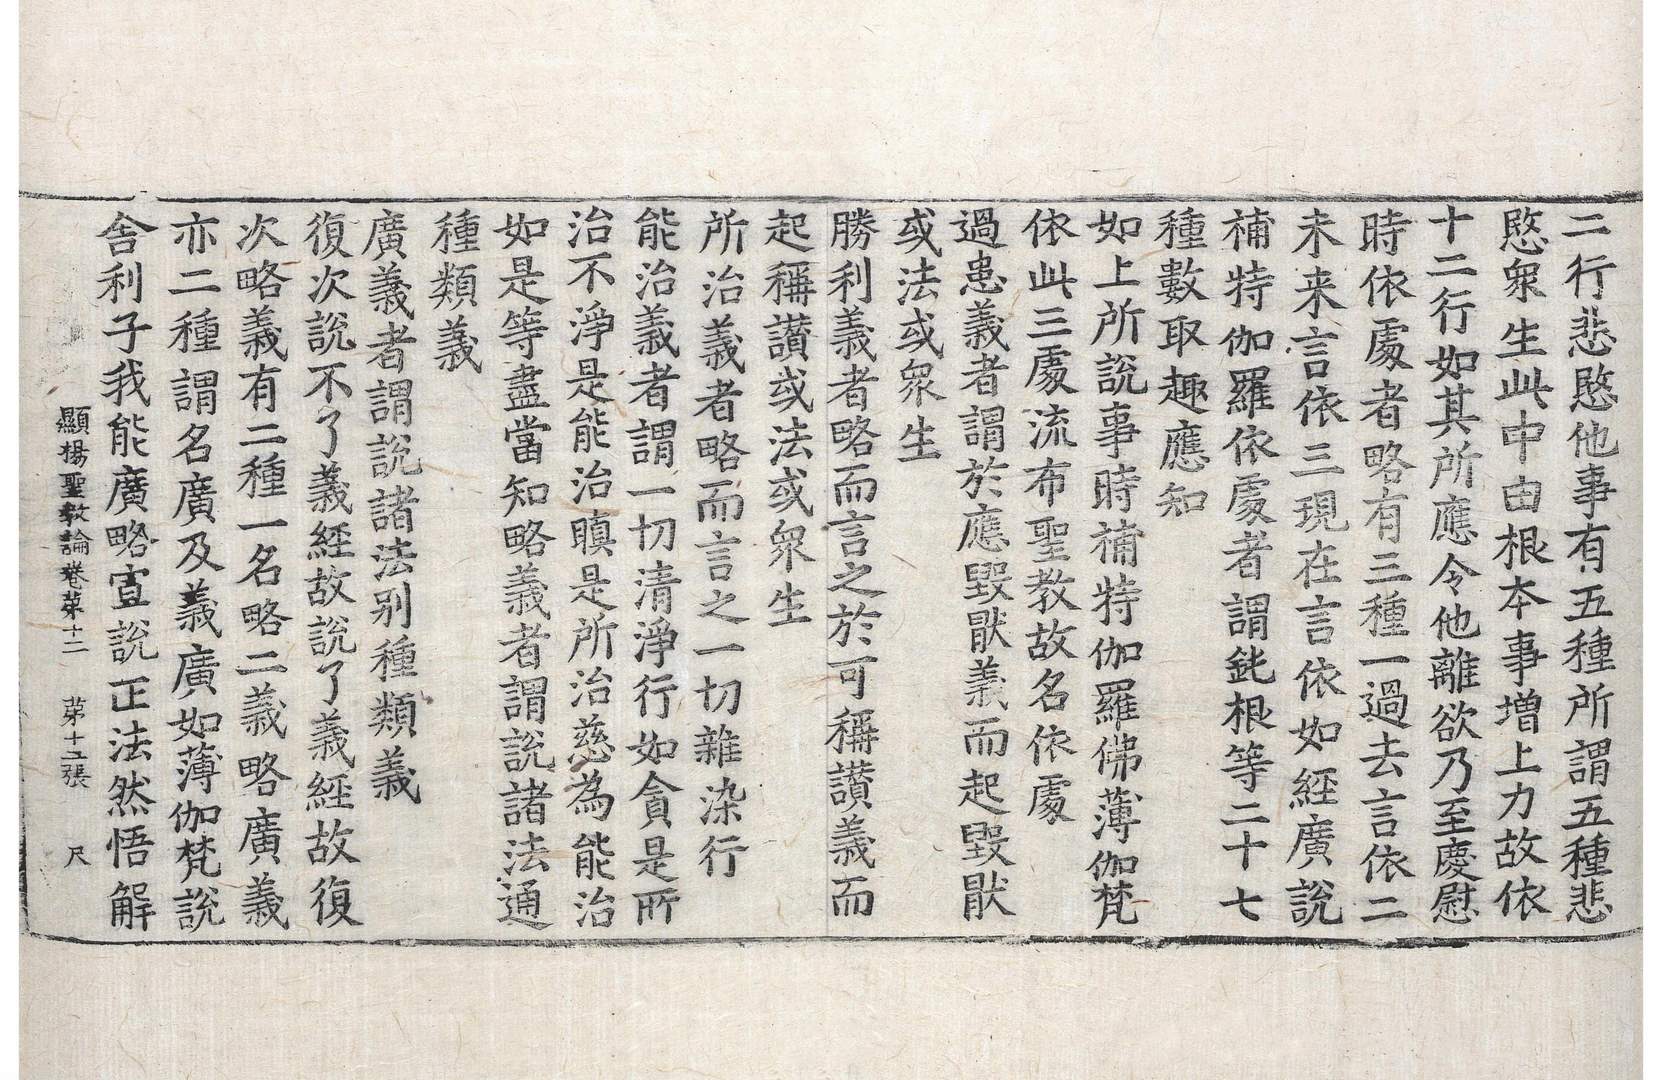 二行悲愍他事有五種所謂五種悲
愍衆生此中由根本事增上力故依
十二行如其所應令他離欲乃至慶慰
時依處者略有三種一過去言依二
未来言依三現在言依如經廣說
補特伽羅依處者謂鈍根等二十七
種數取趣應知
如上所說事時補特伽羅佛薄伽梵
依此三處流布聖教故名依處
過患義者謂於應毀猒義而起毀猒
或法或衆生
勝利義者略而言之於可稱讃義而
起稱讃或法或衆生
所治義者略而言之一切雜染行
能治義者謂一切清淨行如貪是所
治不淨是能治瞋是所治慈為能治
如是等盡當知略義者謂說諸法通
種類義
廣義者謂說諸法别種類義
復次說不了義經故說了義經故復
次略義有二種一名略二義略廣義
亦二種謂名廣及義廣如薄伽梵說
舎利子我能廣略宣說正法然悟解
顯楊聖教論卷苐十二 苐十五張 尺